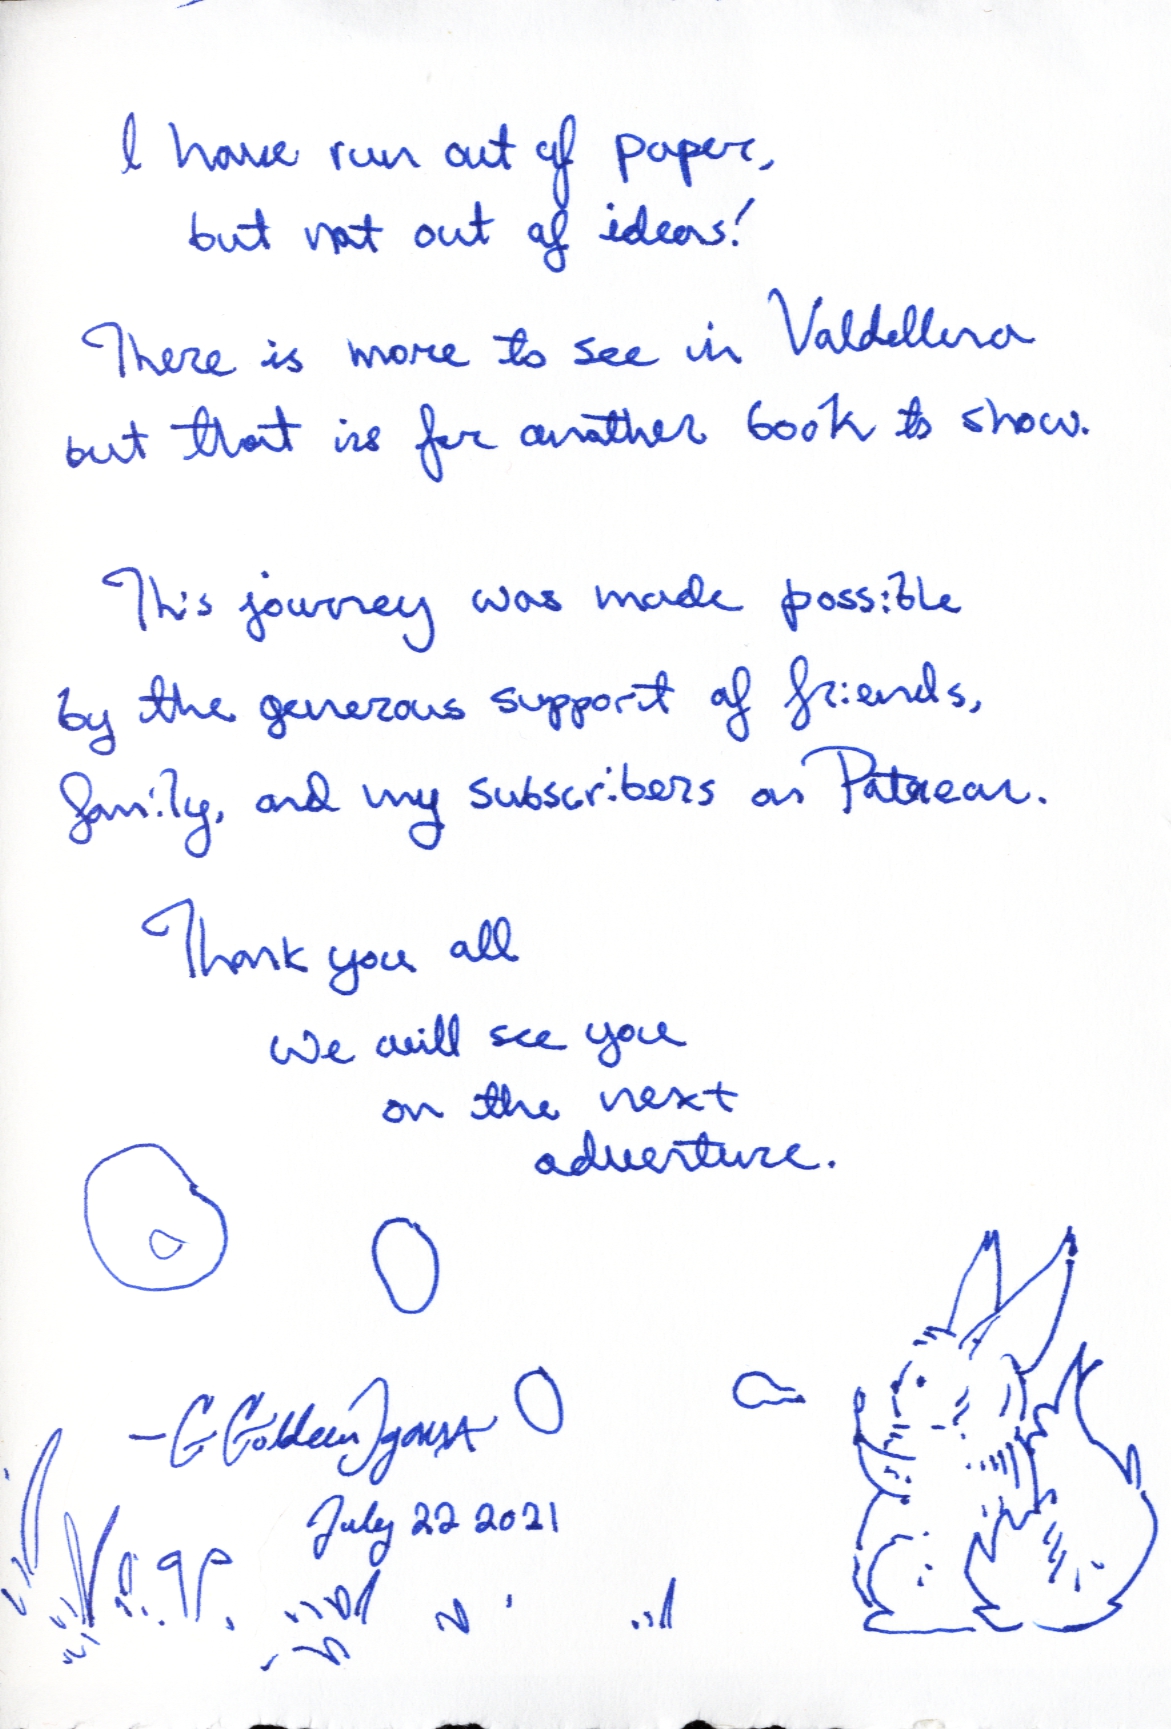 I have run out of paper,
but not out of ideas!
There is more to see in Valdellena
but that is for another book to show.
This journey was made possible
by the generous support of friends,
family, and my subscribers on Patreon.
Thank you all
We will see you
on the next
adventure.
July 22 2021